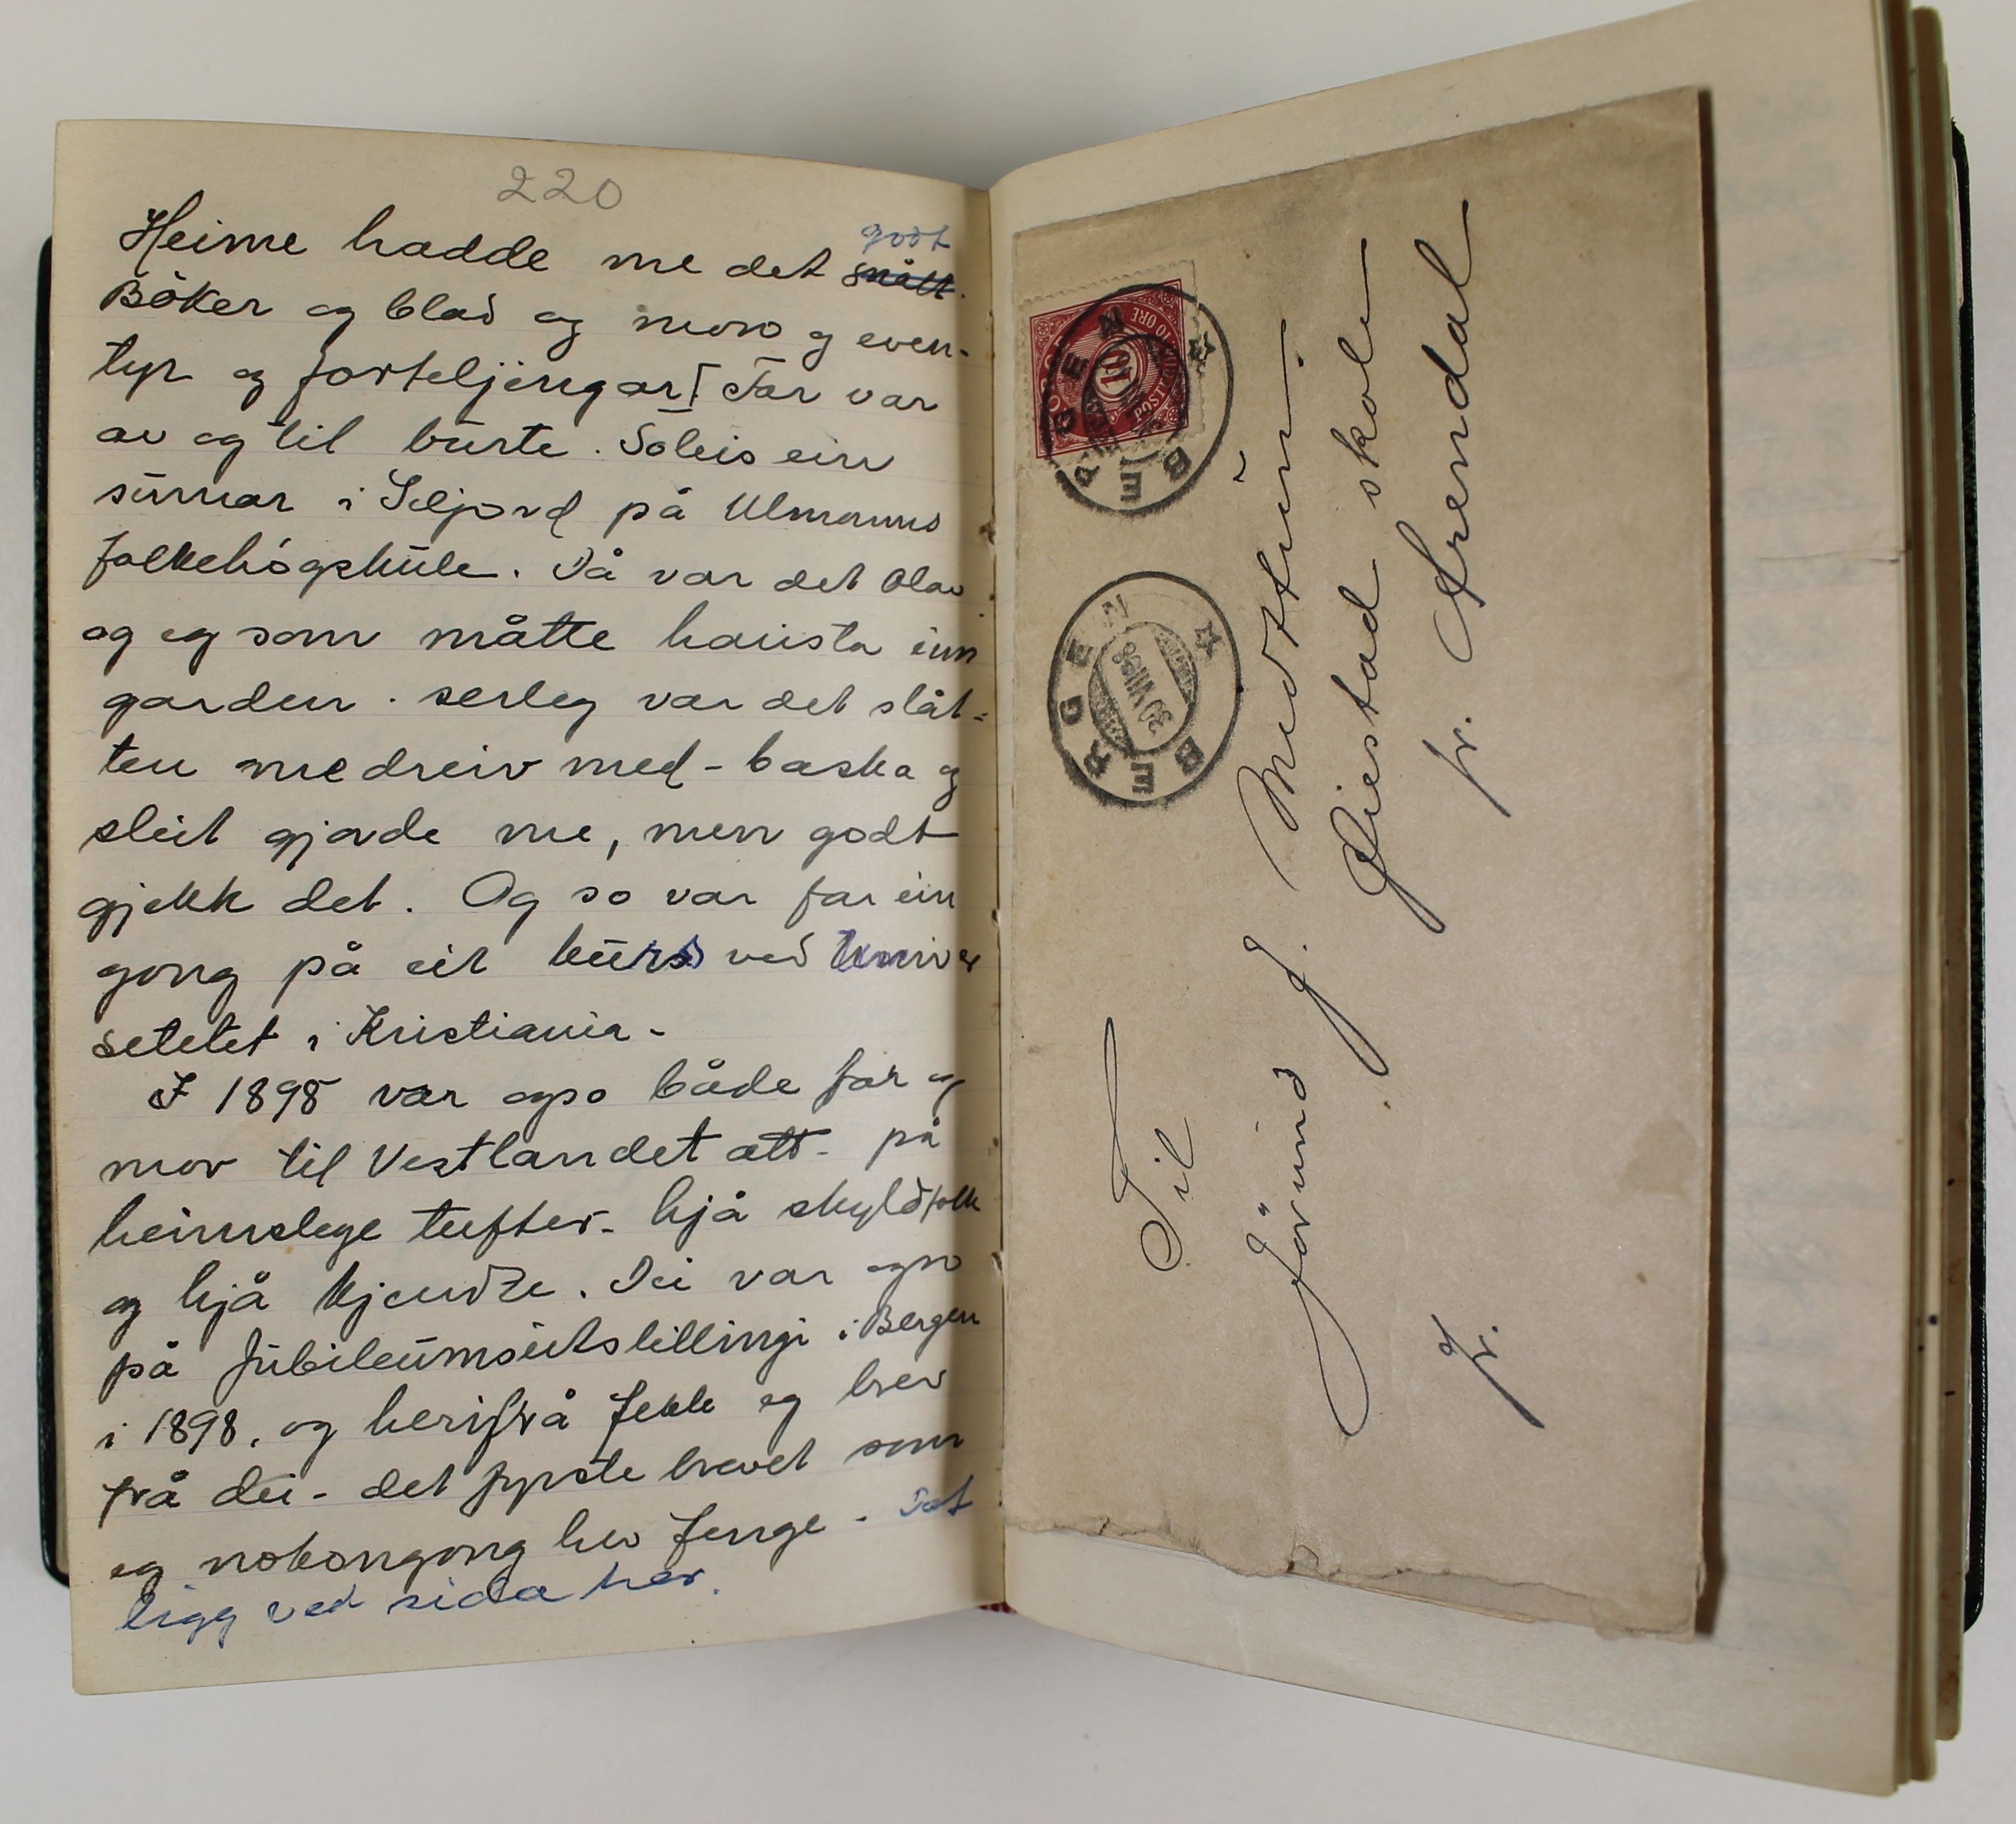 220
Heime hadde me det godt snålt.
Böker og blad og moro og even-
tyr og forteljingar! Far var
av og til burte. Soleis ein
sumar i Seljord på Ulmanns
folkehögskule. Då var det Olav
og eg som måtte hausta inn
garden. serleg var det slåt-
ten me dreiv med - baska og
sleit gjorde me, men godt
gjekk det. Og so var far ein
gong på eit kurs ved Univer
setetet i Kristiania -
I 1898 var ogso både far og
mor til Vestlandet att - på
heimslege tufter - hjå skyldfolk
og hjå kjendte. Dei var ogso
på Jubileumsutstillingi i Bergen
i 1898, og herifrå fekk eg brev
frå dei - det fyrste brevet som
eg nokongong hev fenge. Det
ligg ved sida her.
BERGEN
POSTFRIM 10 ØRE
10
BERGEN
30 VII 98
Til
Jörund J. Midttun.
Øiestad skole
pr. Arendal
pr.